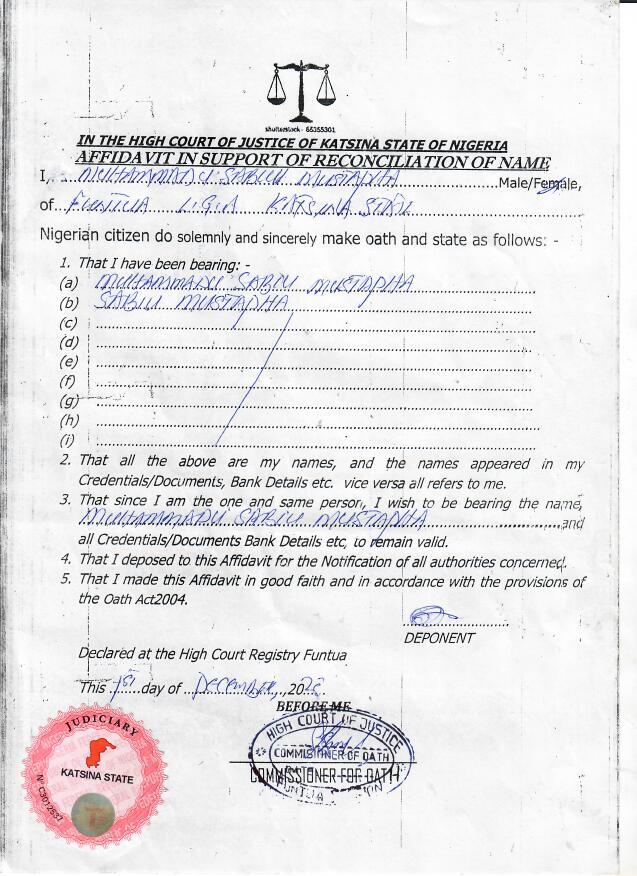 shutterstock · 65355301
IN THE HIGH COURT OF JUSTICE OF KATSINA STATE OF NIGERIA
AFFIDAVIT IN SUPPORT OF RECONCILIATION OF NAME
I, MUHAMMADU SABIU MUSTAPHA Male/Female,
of FUNTUA L.G.A KATSINA STATE
Nigerian citizen do solemnly and sincerely make oath and state as follows: -
1. That I have been bearing: -
(a) MUHAMMADU SABIU MUSTAPHA
(b) SABIU MUSTAPHA
(c)
(d)
(e)
(f)
(g)
(h)
(i)
2. That all the above are my names, and the names appeared in my
Credentials/Documents, Bank Details etc. vice versa all refers to me.
3. That since I am the one and same person, I wish to be bearing the name,
MUHAMMADU SABIU MUSTAPHA and
all Credentials/Documents Bank Details etc, to remain valid.
4. That I deposed to this Affidavit for the Notification of all authorities concerned.
5. That I made this Affidavit in good faith and in accordance with the provisions of
the Oath Act2004.
DEPONENT
Declared at the High Court Registry Funtua
This 1st day of DECEMBER, 20
BEFORE ME
HIGH COURT OF JUSTICE
COMMISSIONER OF OATH
COMMISSIONER FOR OATH
FUNTUA DIVISION
JUDICIARY
KATSINA STATE